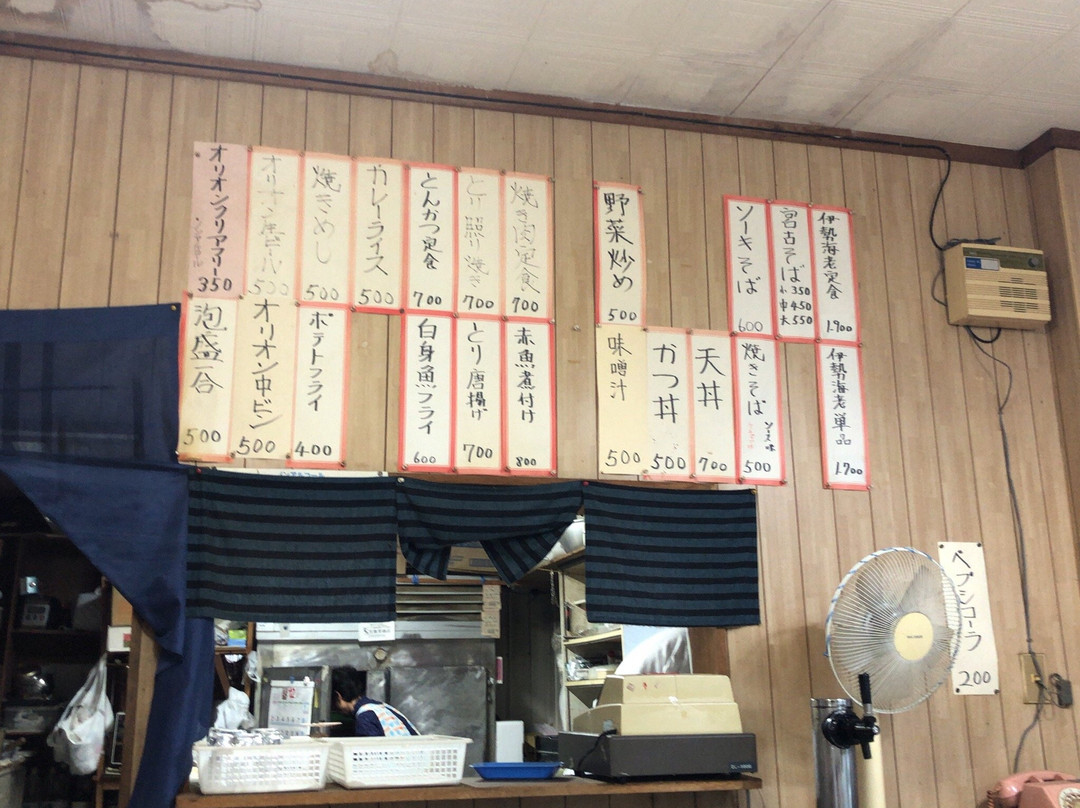 伊勢海老定食 1.900
宮古そば 小350 中450 大550
ソーキそば 600
野菜炒め 500
焼き肉定食 700
とり照り焼き 700
とんかつ定食 700
カレーライス 500
焼きめし 500
オリオン生ビール 500
オリオンフリアマリー 350
伊勢海老単品 1.700
焼きそば ソース味 500
天丼 700
かつ丼 500
味噌汁 500
赤魚煮付け 800
とり唐揚げ 700
白身魚フライ 600
ポテトフライ 400
オリオン中ビン 500
泡盛一合 500
ペプシコーラ 200